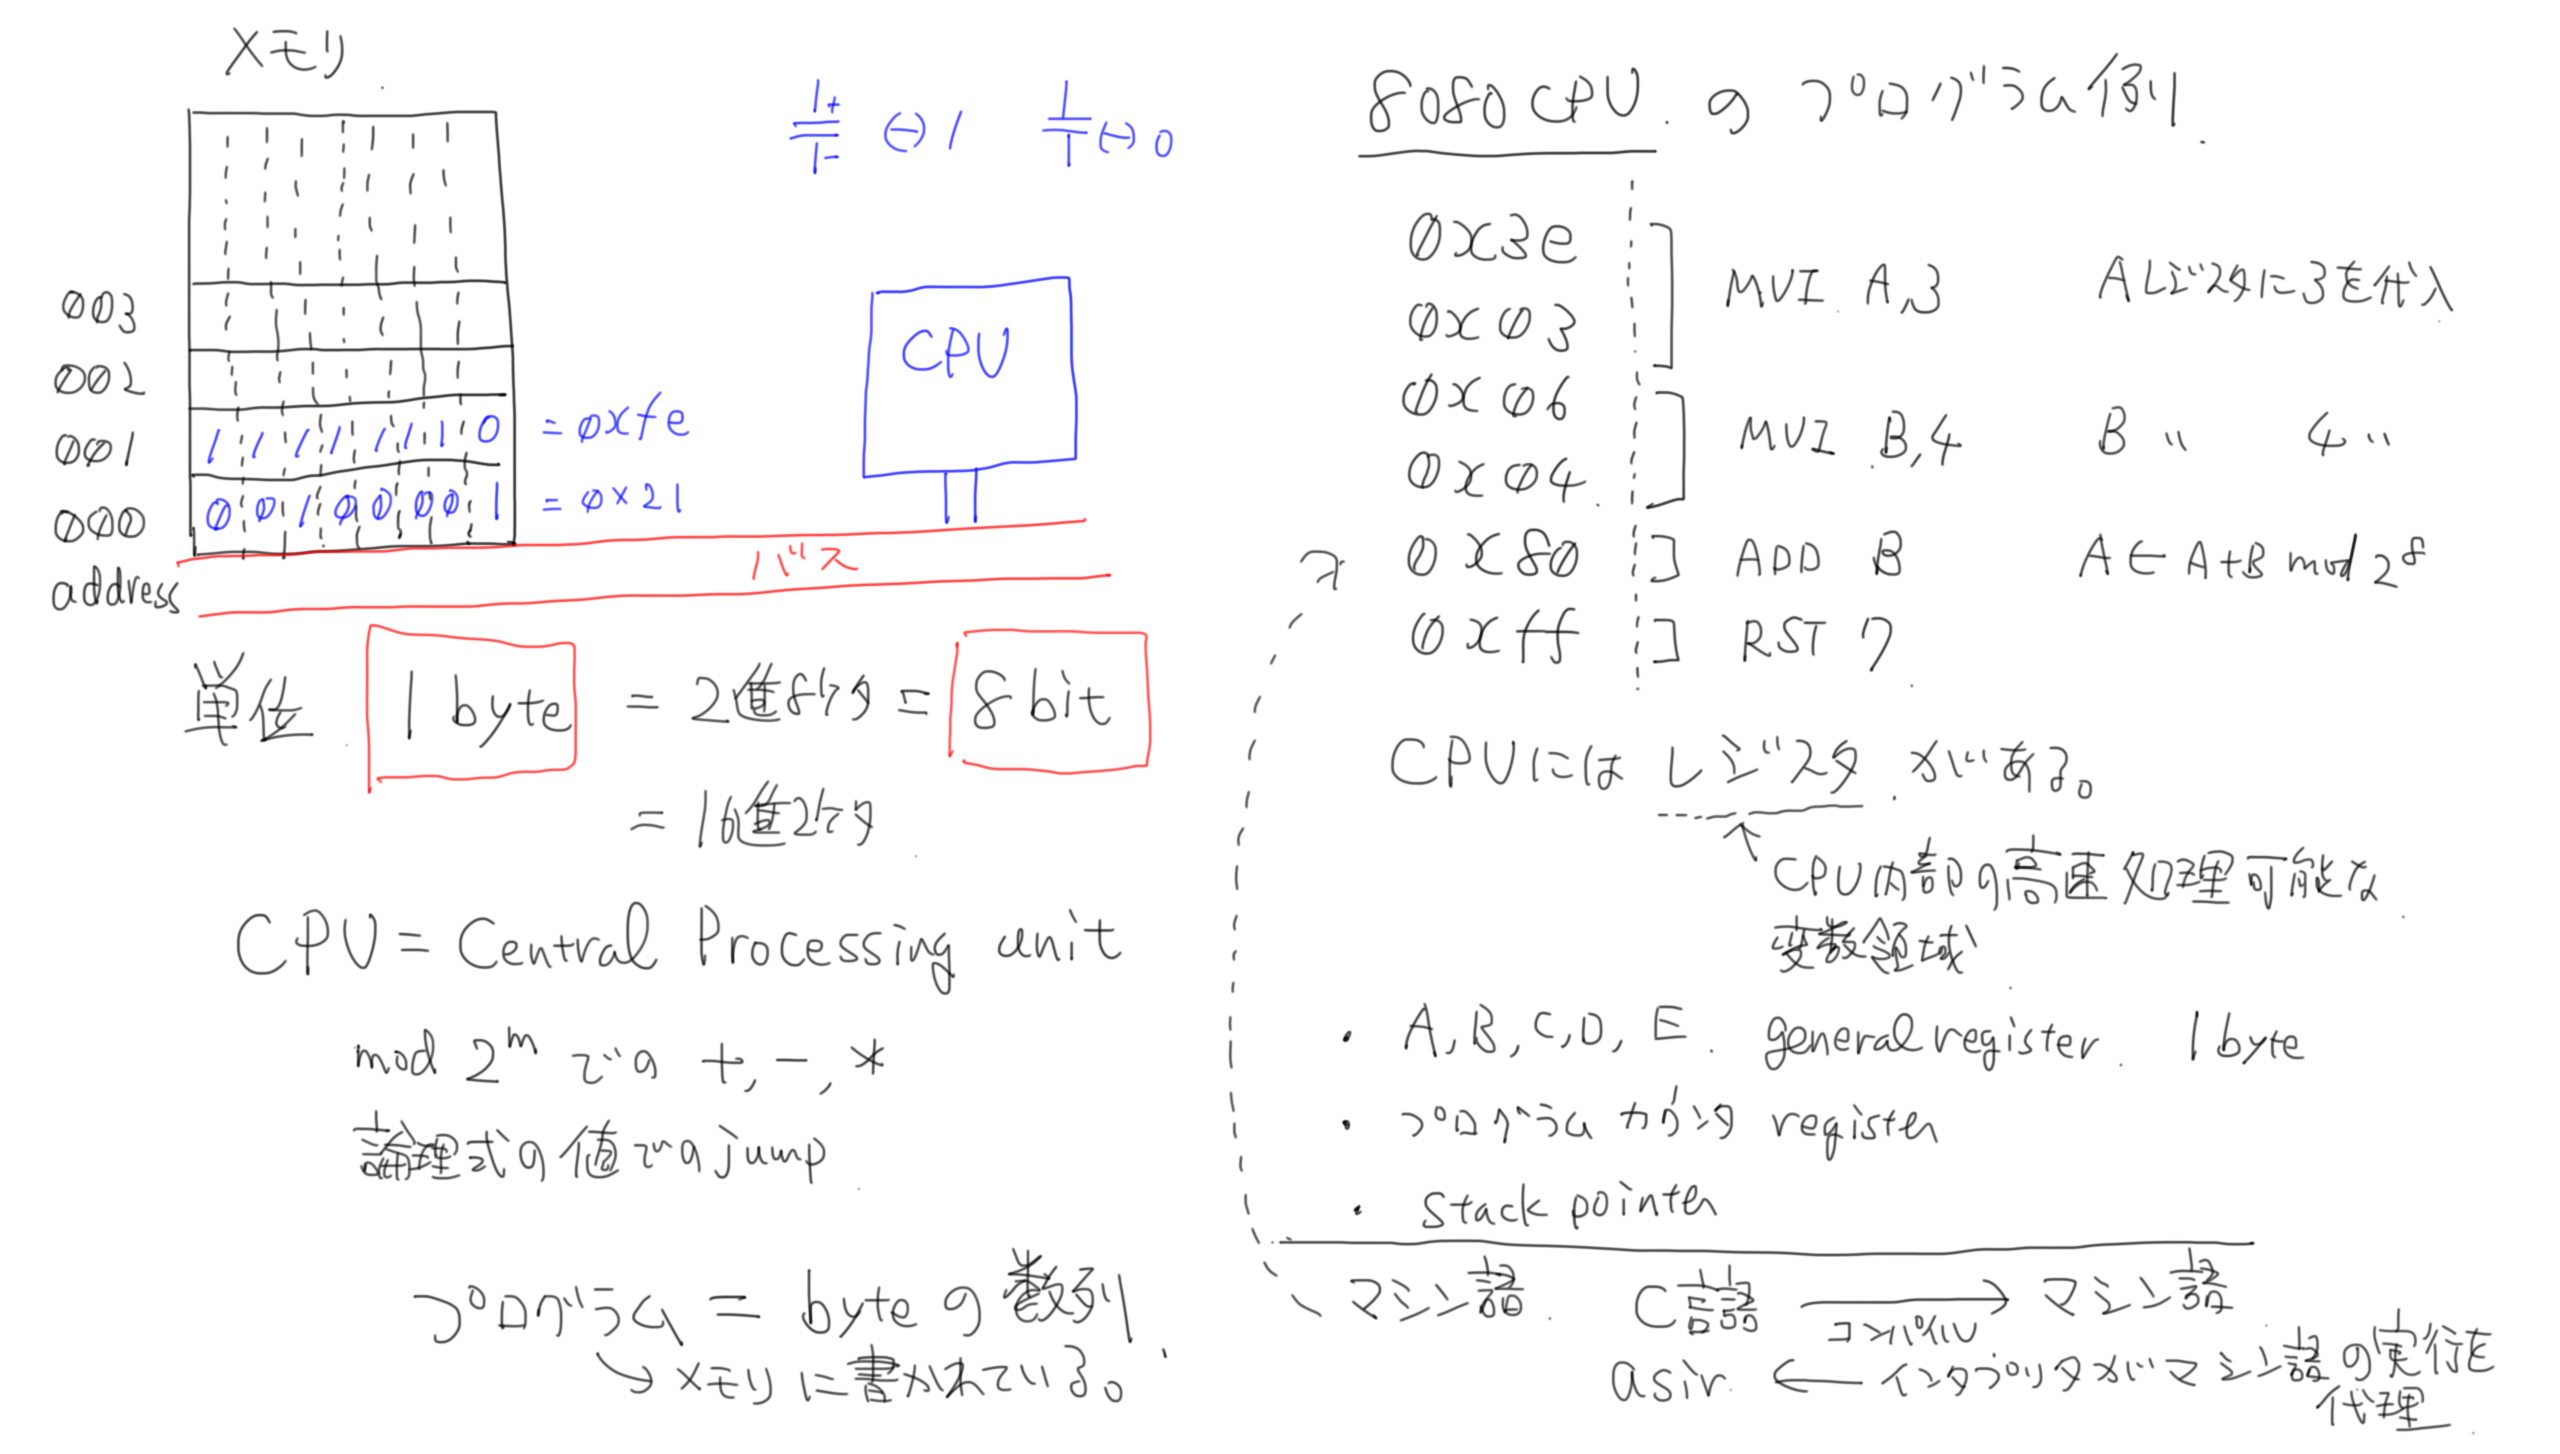 メモリ
1+
1-
↔ 1
↔ 0
003
002
001 1 1 1 1 1 1 1 0 = 0xfe
000 0 0 1 0 0 0 0 1 = 0x21
address
CPU
バス
単位 1 byte = 2進8ケタ = 8 bit
= 16進2ケタ
CPU = Central Processing unit
mod 2^m での +, -, *
論理式の値でのjump
プログラム = byteの数列
↳ メモリに書かれている。
8080 CPU のプログラム例
0x3e
0x03
MVI A,3 Aレジスタに3を代入
0x06
0x04
MVI B,4 B 〃 4 〃
0x80 ] ADD B A ← A+B mod 2^8
0xff ] RST 7
CPUには レジスタ がある。
↑ CPU内部の高速処理可能な
変数領域
・ A, B, C, D, E general register 1 byte
・ プログラムカウンタ register
・ stack pointer
マシン語 C言語 → マシン語
コンパイル
asir ← インタプリタがマシン語の実行を
代理